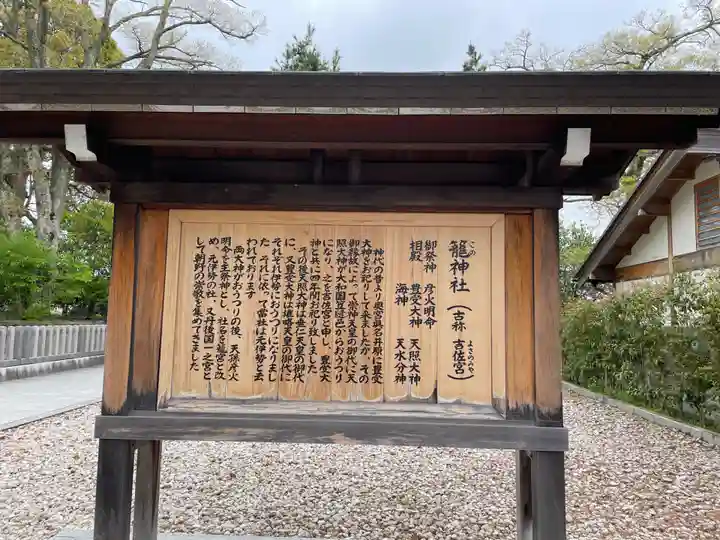 この
籠神社（古称 吉佐宮）
よさのみや
御祭神 彦火明命
相殿 豊受大神 天照大神
海神 天水分神
神代の昔より奥宮眞名井原に豊受
大神をお祀りして来ましたが、その
御縁故によって崇神天皇の御代に天
照大神が大和国笠縫邑からおうつり
になり、之を吉佐宮と申し、豊受大
神と共に四年間お祀り致しました
その後天照大神は垂仁天皇の御代
に、又豊受大神は雄略天皇の御代に
それぞれ伊勢におうつりになりまし
た。それに依って当社は元伊勢と云
われております
両大神がおうつりの後、天孫彦火
明命を主祭神とし、社名を籠宮と改
め、元伊勢の社、又丹後国一之宮と
して朝野の崇敬を集めてきました